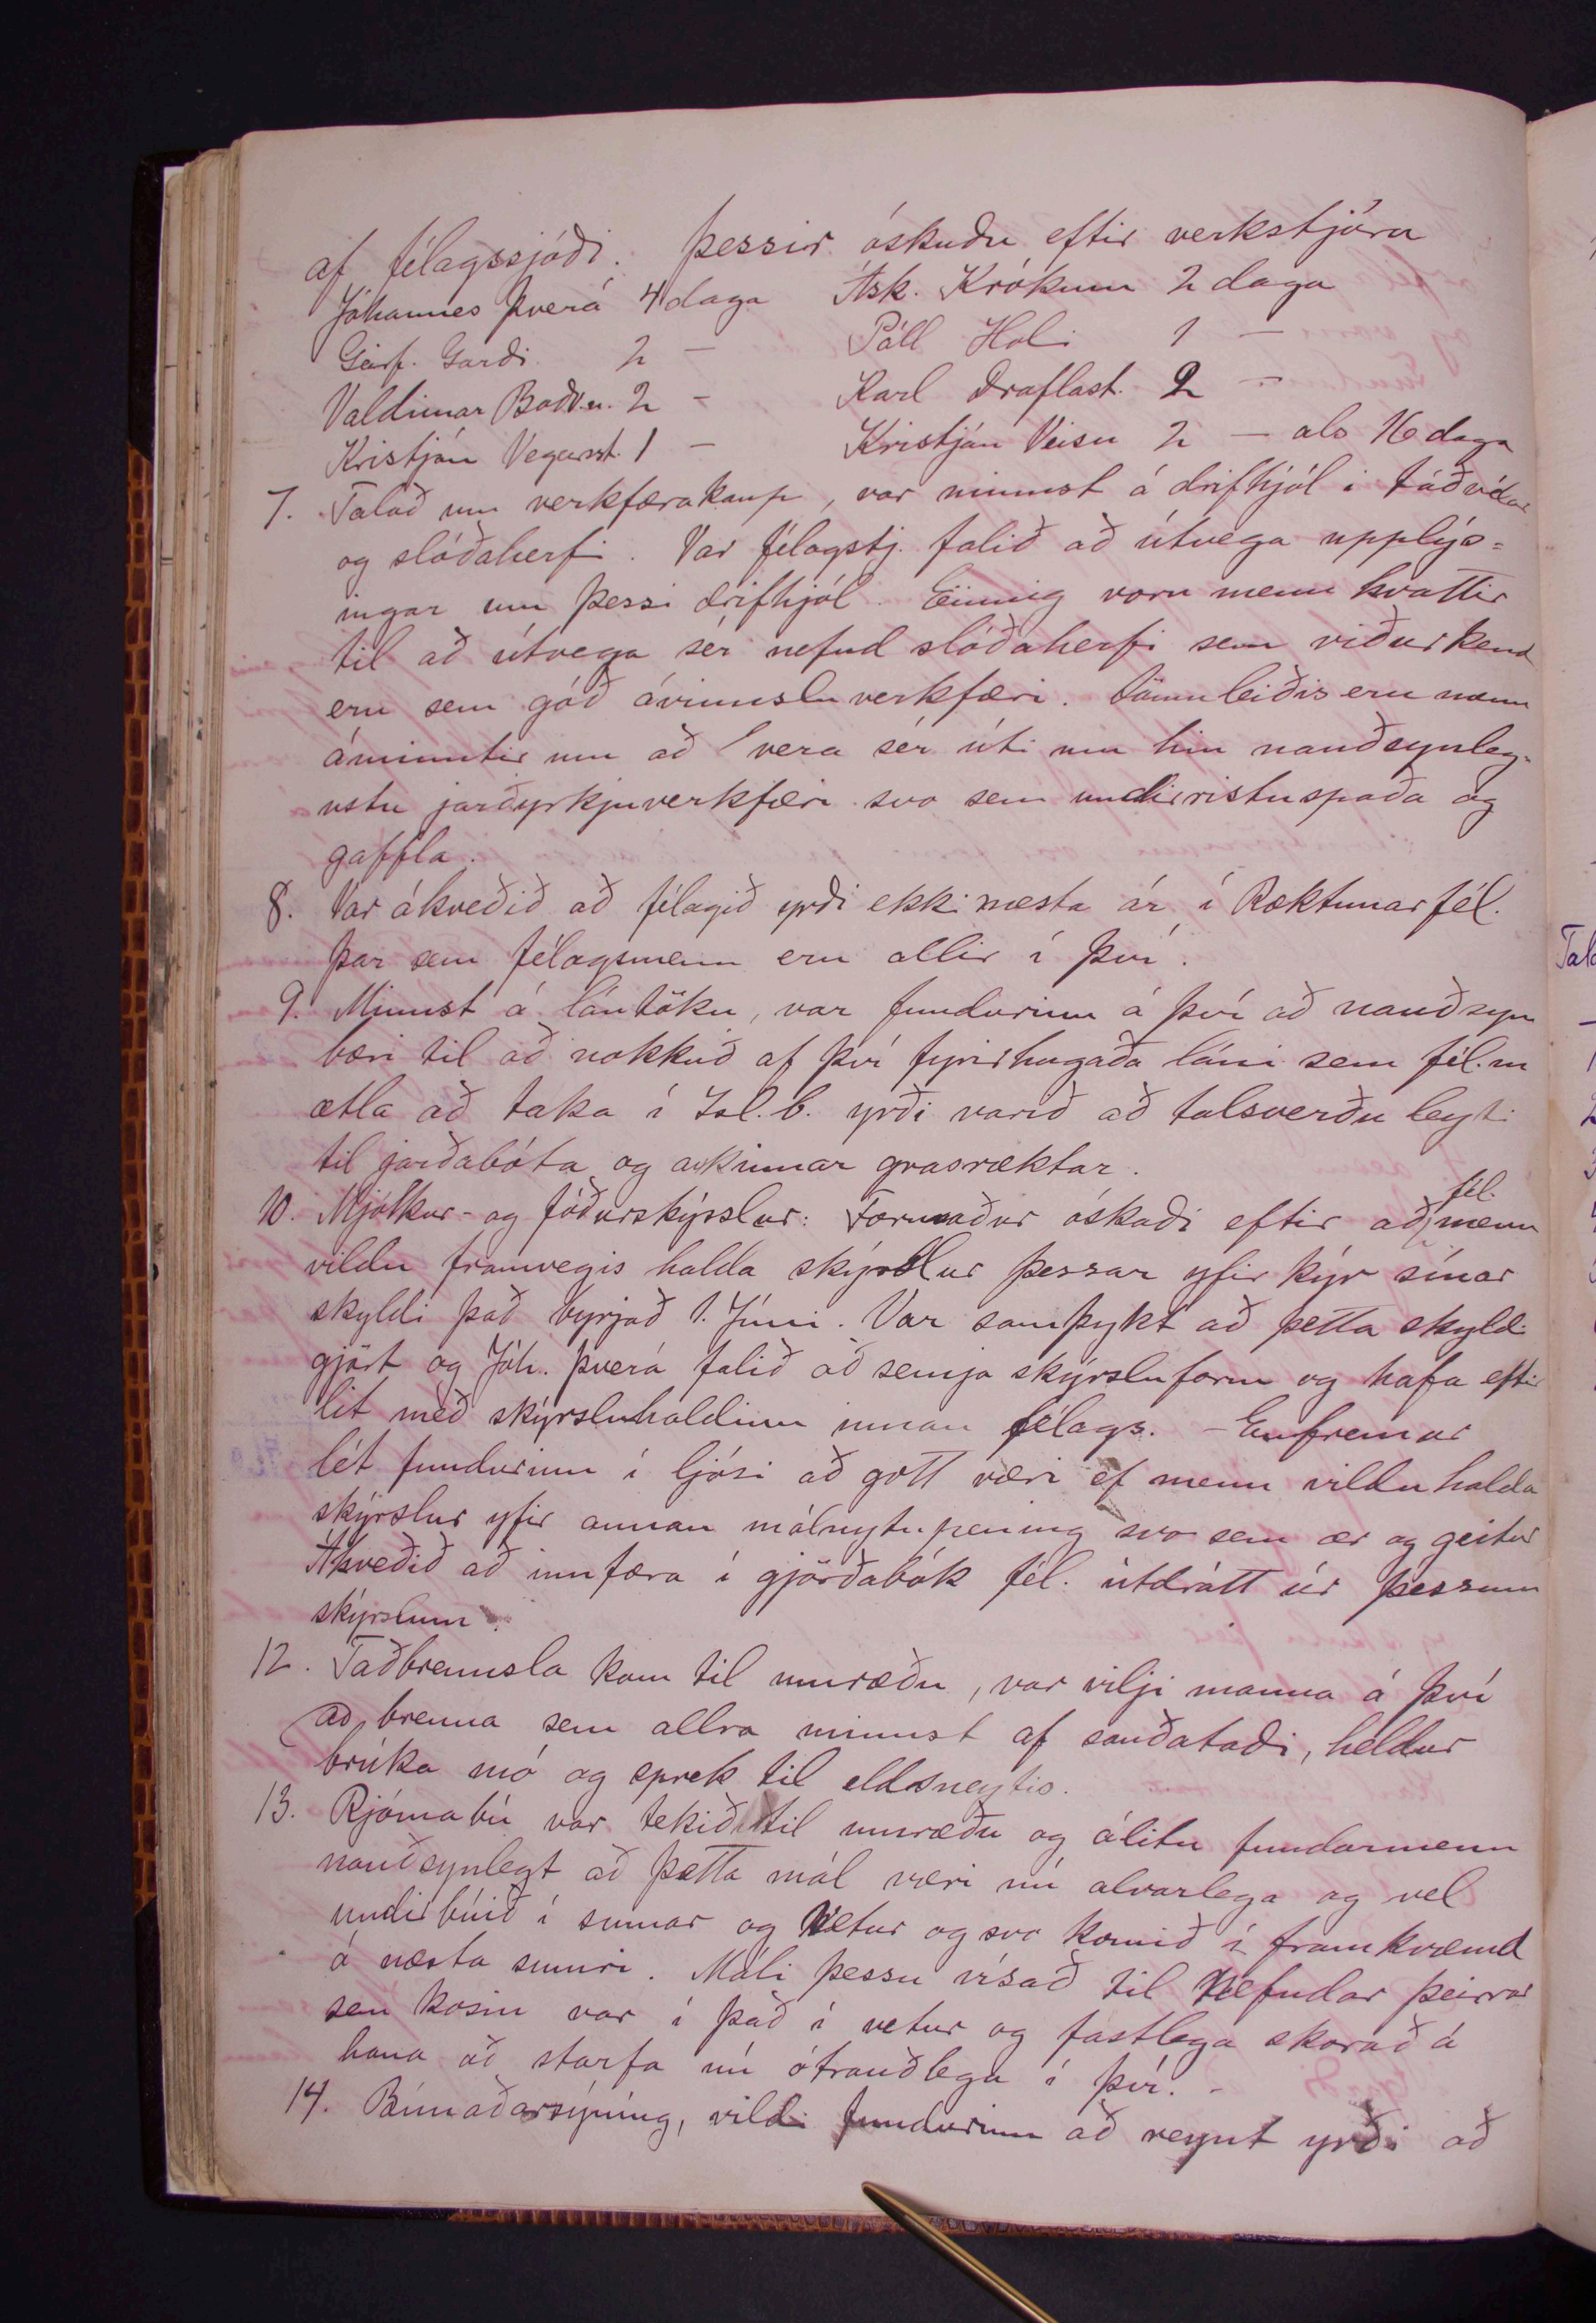 af félagssjóði. Þessir óskuðu eftir verkstjóra
Jóhannes Þverá 4 daga Ásk. Krókum 2 daga
Geirf. Garði 2 — Páll Holi 1 —
Valdimar Böðv.n. 2 — Karl Draflast. 2 —
Kristján Vegarst. 1 — Kristján Veisu 2 — als 16 daga
7. Talað um verkfærakaup, var minnst á drifhjól i táðvélar
og slóðaherfi. Var félagstj. falið að útvega upplýs=
ingar um þessi drifhjól. Einnig voru menn hvattir
til að útvega sér nefnd slóðaherfi sem viðurkend
eru sem góð ávinnslu verkfæri. Sömuleiðis eru menn
ámintir um að vera sér úti um hin nauðsynleg-
ustu jarðyrkjuverkfæri svo sem undirristuspaða og
gaffla.
8. Var ákveðið að félagið yrði ekki næsta ár í Ræktunarfél.
þar sem félagsmenn eru allir í því.
9. Minnst á lántöku, var fundurinn á því að nauðsyn
bæri til að nokkuð af því fyrirhugaða láni sem fél.m
ætla að taka í Ísl.b. yrði varið að talsverðu leyti
til jarðabóta og aukinnar grasræktar.
10. Mjólkur- og fóðurskýrslur: Formaður óskaði eftir að fél. menn
vildu framvegis halda skýrslur þessar yfir kýr sínar
skyldi það byrjað 1. Júní. Var samþykt að þetta skyldi
gjört og Jóh. Þverá falið að semja skýrsluform og hafa eftir
lit með skýrsluhaldinu innan félags. - Enfremur
lét fundurinn í ljósi að gott væri ef menn vildu halda
skýrslur yfir annan málnytupening svo sem ær og geitur
Ákveðið að innfæra í gjörðabók fél. útdrátt úr þessum
skýrslum.
12. Taðbrennsla kom til umræðu, var vilji manna á því
að brenna sem allra minnst af sauðataði, heldur
brúka mó og sprek til eldsneytis.
13. Rjómabú var tekið til umræðu og álitu fundarmenn
nauðsynlegt að þetta mál væri nú alvarlega og vel
undirbúið í sumar og vetur og svo komið í framkvæmd
á næsta sumri. Máli þessu vísað til nefndar þeirrar
sem kosin var í það í vetur og fastlega skorað á
hana að starfa nú ótrauðlega í því. -
14. Búnaðarsýning, vildi fundurinn að reynt yrði að